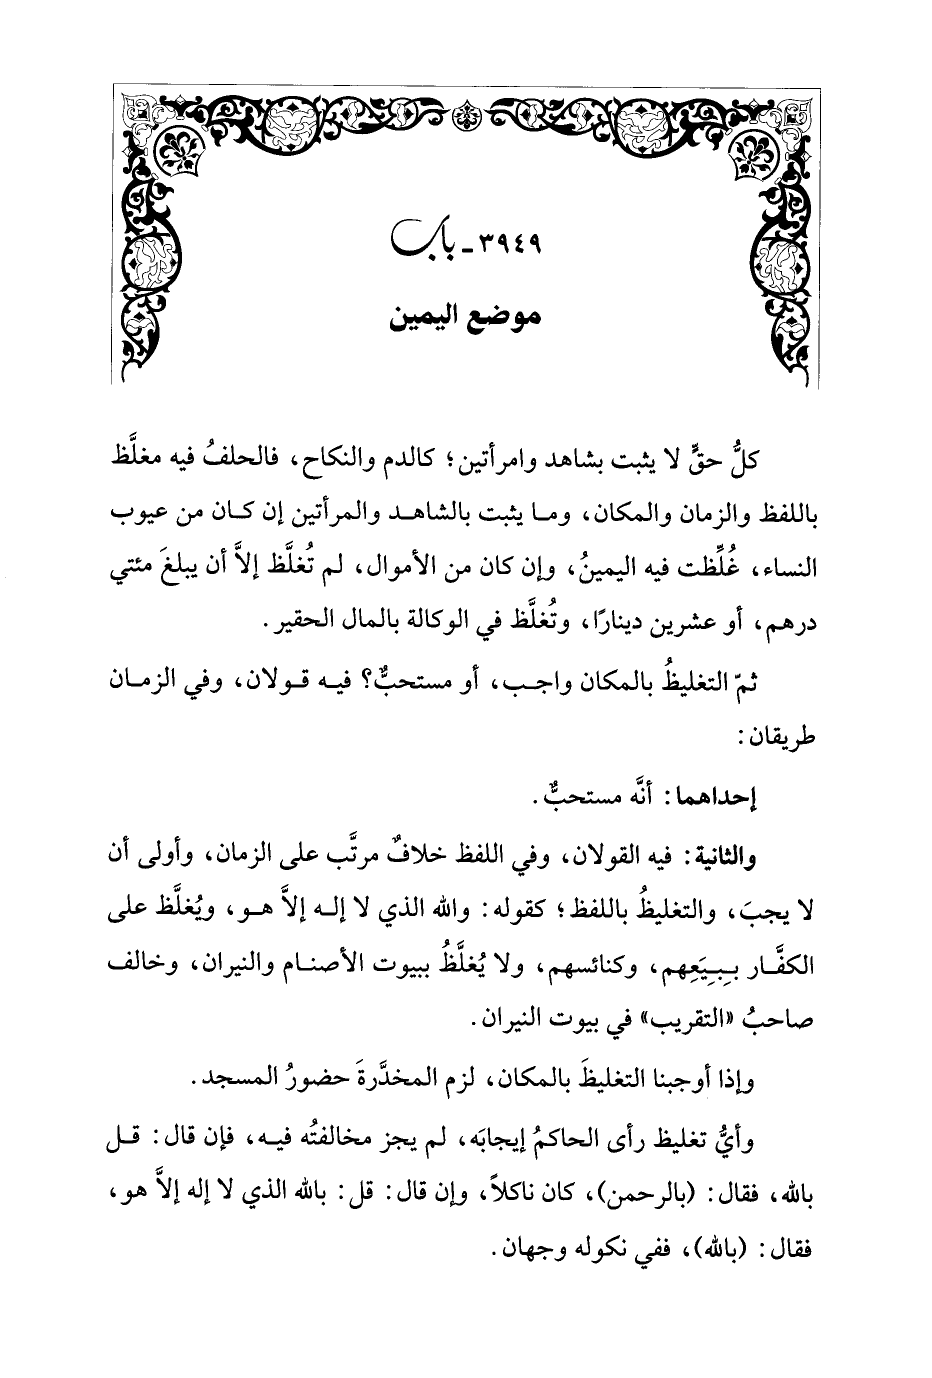 ٣٩٤٩ - باب
موضع اليمين
كلُّ حقٍّ لا يثبت بشاهد وامرأتين؛ كالدم والنكاح، فالحلفُ فيه مغلَّظ
باللفظ والزمان والمكان، وما يثبت بالشاهد والمرأتين إن كان من عيوب
النساء، غُلِّظت فيه اليمينُ، وإن كان من الأموال، لم تُغلَّظ إلاَّ أن يبلغَ مئتي
درهم، أو عشرين دينارًا، وتُغلَّظ في الوكالة بالمال الحقير.
ثمّ التغليظُ بالمكان واجب، أو مستحبٌّ؟ فيه قولان، وفي الزمان
طريقان:
إحداهما: أنَّه مستحبٌّ.
والثانية: فيه القولان، وفي اللفظ خلافٌ مرتَّب على الزمان، وأولى أن
لا يجبَ، والتغليظُ باللفظ؛ كقوله: والله الذي لا إله إلاَّ هو، ويُغلَّظ على
الكفَّار بِبِيَعِهم، وكنائسهم، ولا يُغلَّظُ ببيوت الأصنام والنيران، وخالف
صاحبُ «التقريب» في بيوت النيران.
وإذا أوجبنا التغليظَ بالمكان، لزم المخدَّرةَ حضورُ المسجد.
وأيُّ تغليظ رأى الحاكمُ إيجابَه، لم يجز مخالفتُه فيه، فإن قال: قل
بالله، فقال: (بالرحمن)، كان ناكلاً، وإن قال: قل: بالله الذي لا إله إلاَّ هو،
فقال: (بالله)، ففي نكوله وجهان.